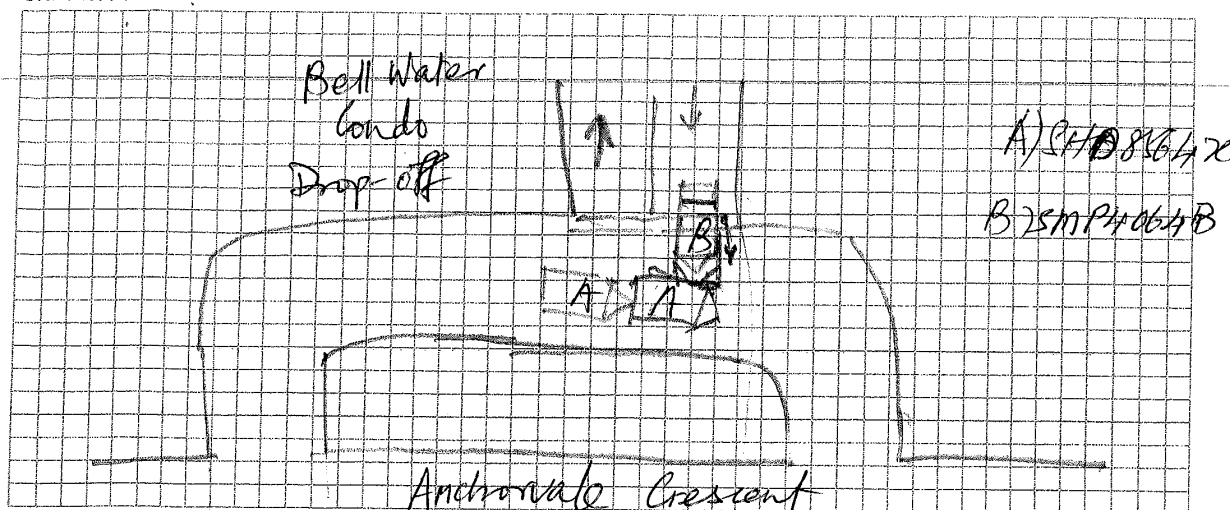 Bell Water
Condo
Drop-off
A) SHD8564X
B) SMP4064B
B
A
A
Anchorvale Crescent